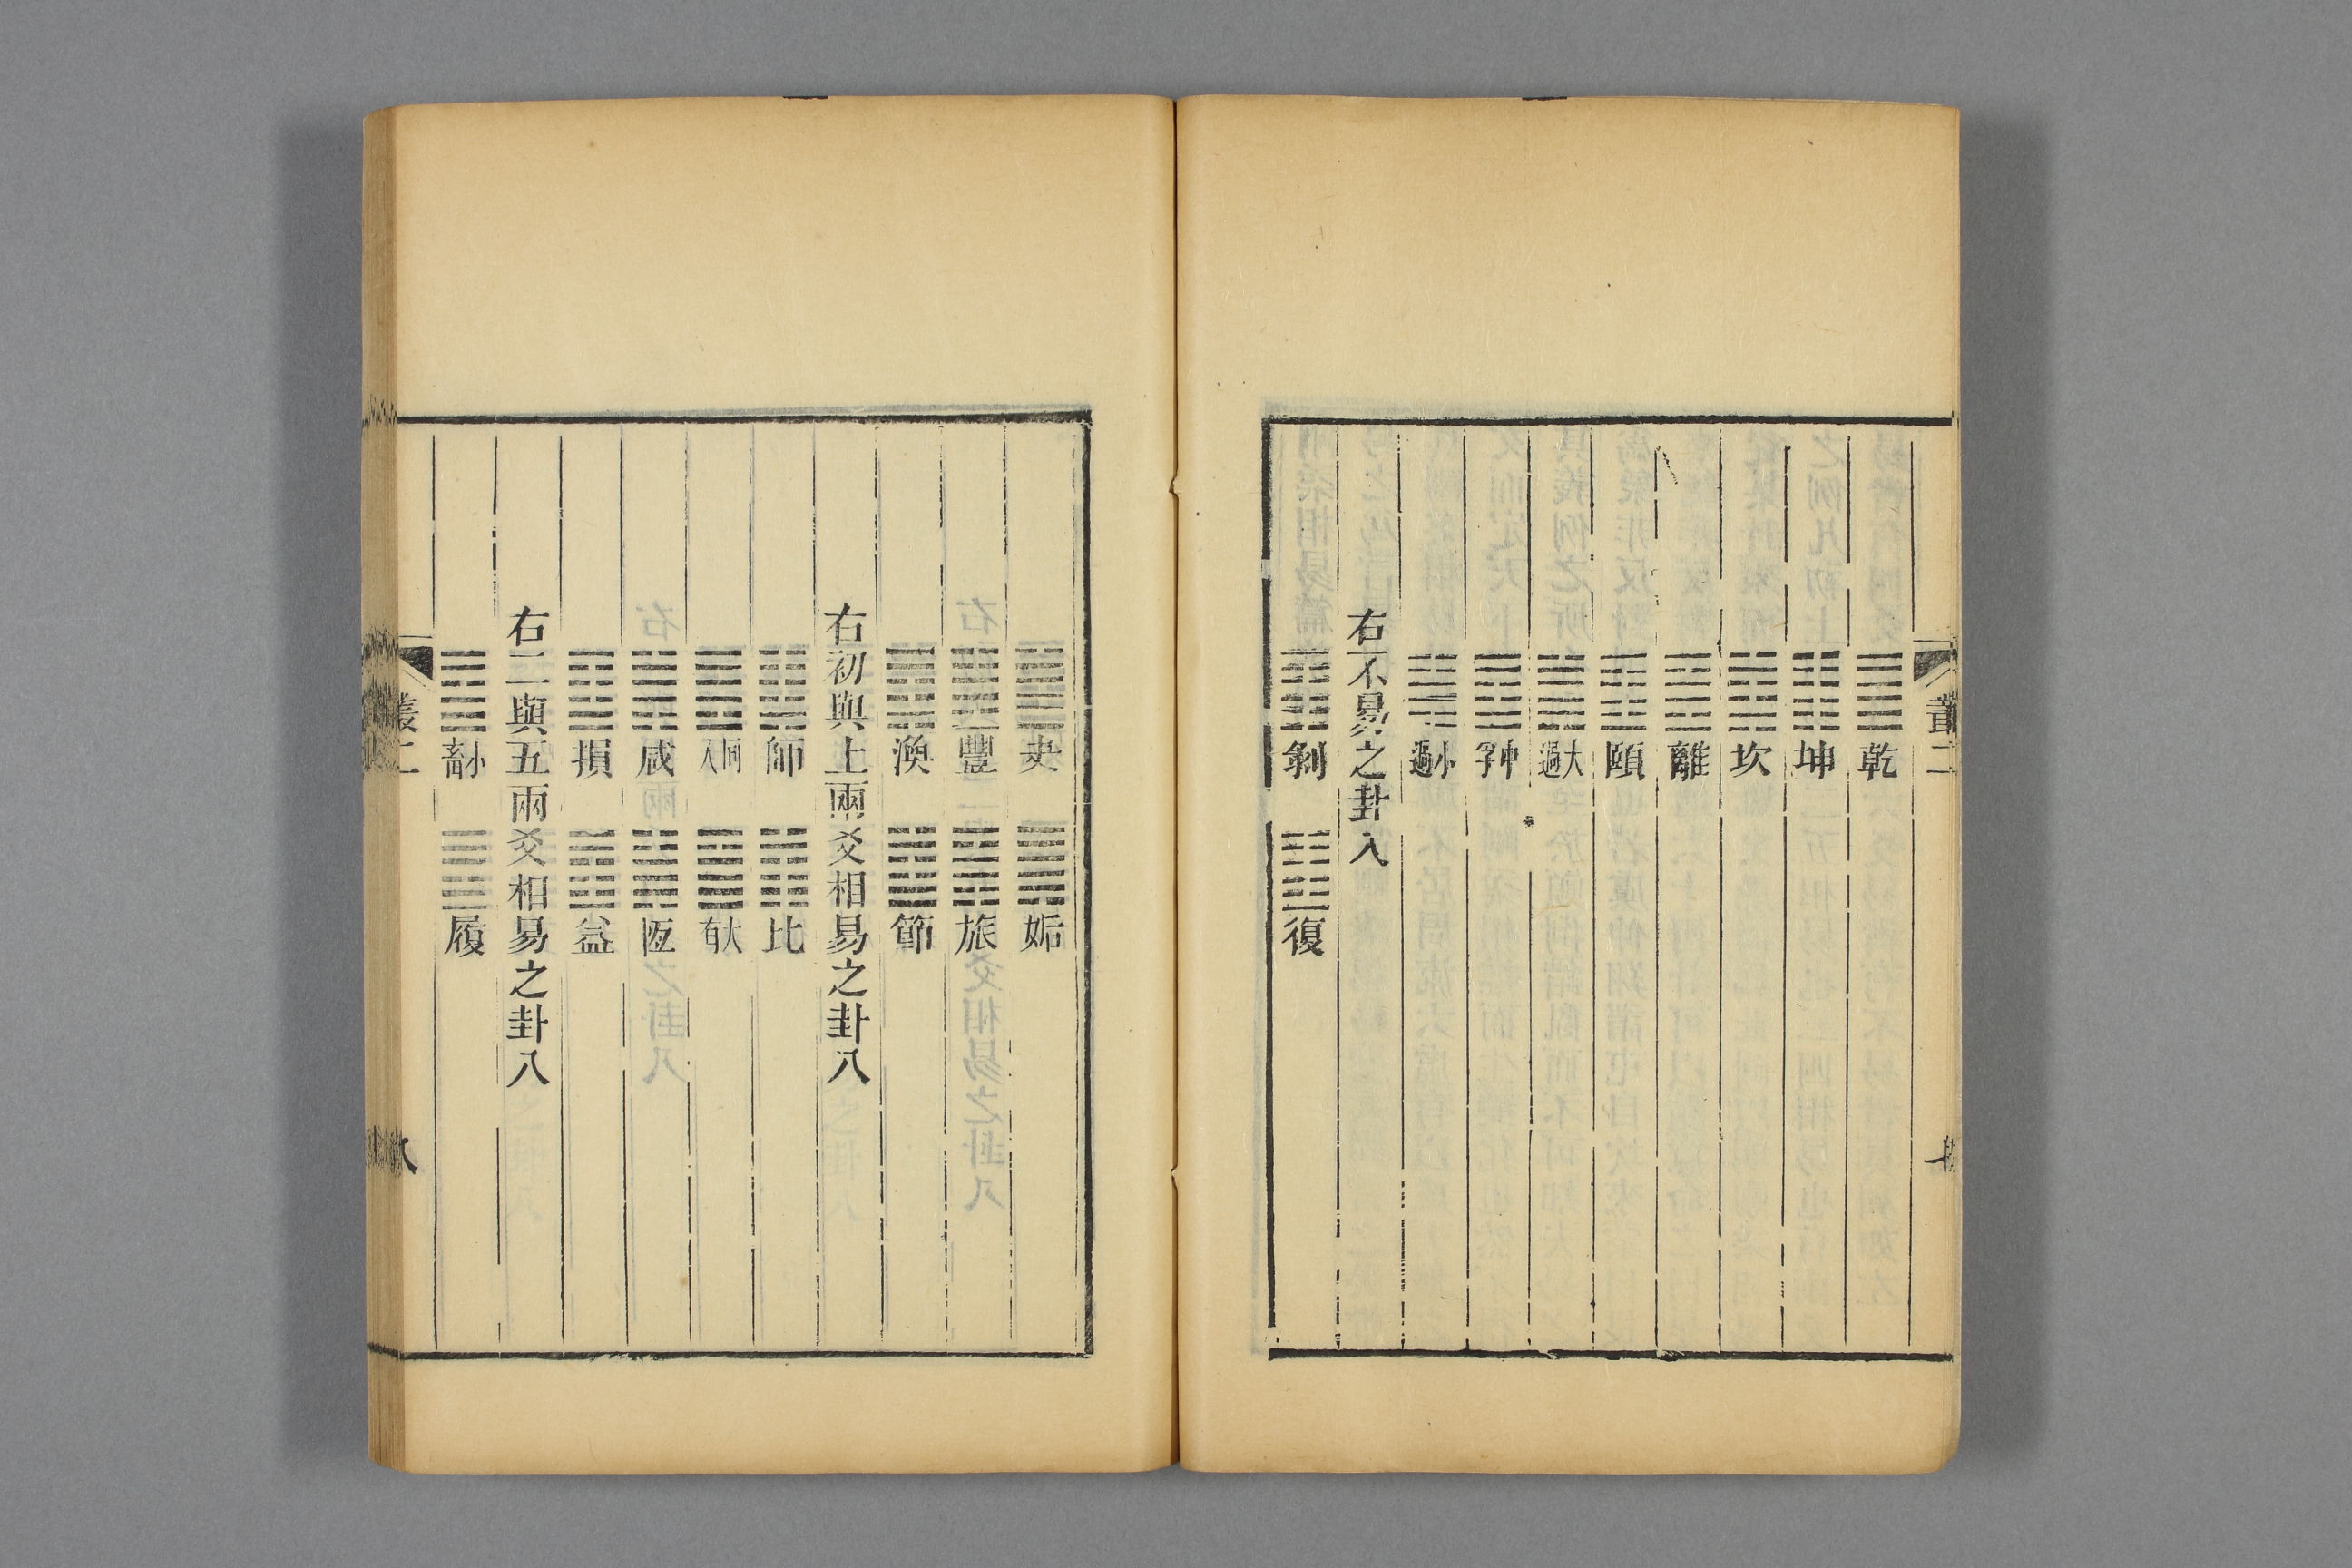 叢二
七
乾
坤
坎
離
頤
大過
中孚
小過
右不易之卦八
剝 復
夬 姤
豐 旅
渙 節
右初與上兩爻相易之卦八
師 比
同人 大有
咸 恆
損 益
右二與五兩爻相易之卦八
小畜 履
叢二
八